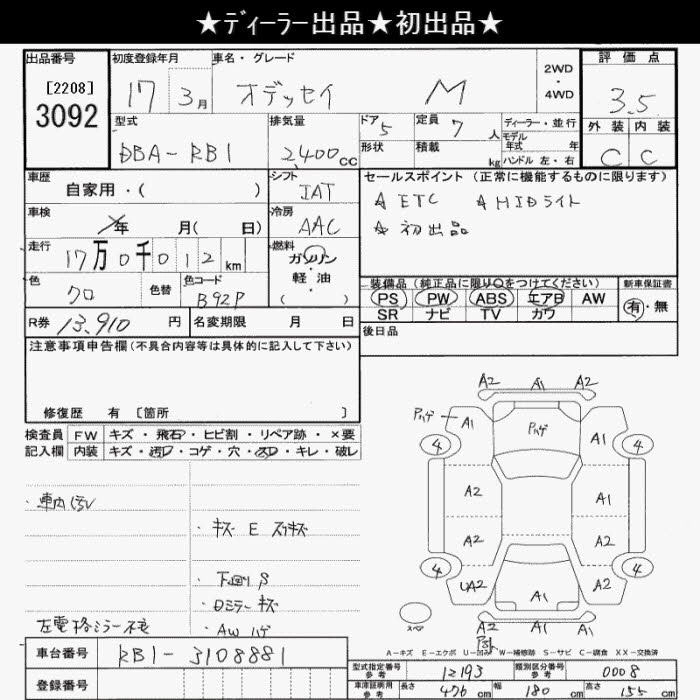 ★ディーラー出品★初出品★
出品番号 初度登録年月 車名・グレード 2WD・4WD 評価点
[2208]
3092
17 3月 オデッセイ M 3.5
型式 排気量 ドア 定員 ディーラー・並行 外装 内装
DBA-RB1 2400cc 5 7人 モデル年式 年 C C
形状 積載 kg ハンドル 左・右
車歴 シフト セールスポイント(正常に機能するものに限ります)
自家用・( ) IAT ☆ETC ☆HIDライト
車検 年 月( 日) 冷房 AAC ☆初出品
走行 17万0千012km 燃料 ガソリン・軽油 ( )
色 クロ 色替 色コード B92P
装備品(純正品に限り○をつけてください) 新車保証書
PS PW ABS エアB AW 有・無
SR ナビ TV カワ
R券 13,910円 名変期限 月 日 後日品
注意事項申告欄(不具合内容等は具体的に記入して下さい)
修復歴 有 [箇所 ]
検査員 FW キズ・飛石・ヒビ割・リペア跡・×要
記入欄 内装 キズ・汚レ・コゲ・穴・スレ・キレ・破レ
・車内汚レ
・キズ E スリキズ
・下回りS
・ロミラーキズ
・AWハゲ
左電格ミラー不良
A2 A1 A2
Pハゲ A1 Pハゲ A1
4 4
A2 A1
A2 A2
4 4
UA2 A1 A2
スペア A2 A1 A2
A-キズ E-エクボ U-凹み W-補修跡 S-サビ C-腐食 XX-交換済
車台番号 RB1-3108881
登録番号
型式指定番号 参考 12193 類別区分番号 参考 0008
車庫証明用 参考 長さ 476cm 幅 180cm 高さ 155cm